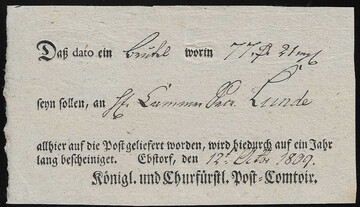 Daß dato ein Beutel worin 77 21
seyn sollen, an Cammer Lunde
allhier auf die Post geliefert worden, wird hiedurch auf ein Jahr
lang bescheiniget. Ebstorf, den 12t Octbr 1809.
Königl. und Churfürstl. Post-Comtoir.